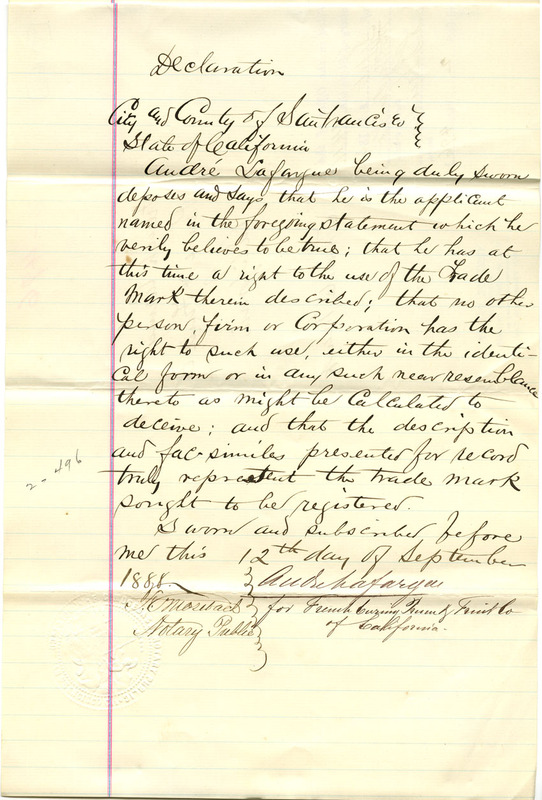 Declaration
City and County of San Francisco
State of California
André Lafargue being duly sworn
deposes and says, that he is the applicant
named in the foregoing statement which he
verily believes to be true; that he has at
this time a right to the use of the Trade
Mark therein described; that no other
person, firm or Corporation has the
right to such use, either in the identi-
cal form or in any such near resemblance
thereto as might be Calculated to
deceive; and that the description
and fac-similes presented for record
truly represent the trade mark
sought to be registered.
Sworn and subscribed before
me this 12th day of September
1888.
André Lafargue
for French Curing Prune & Fruit Co
of California.
Notary Public
2-496